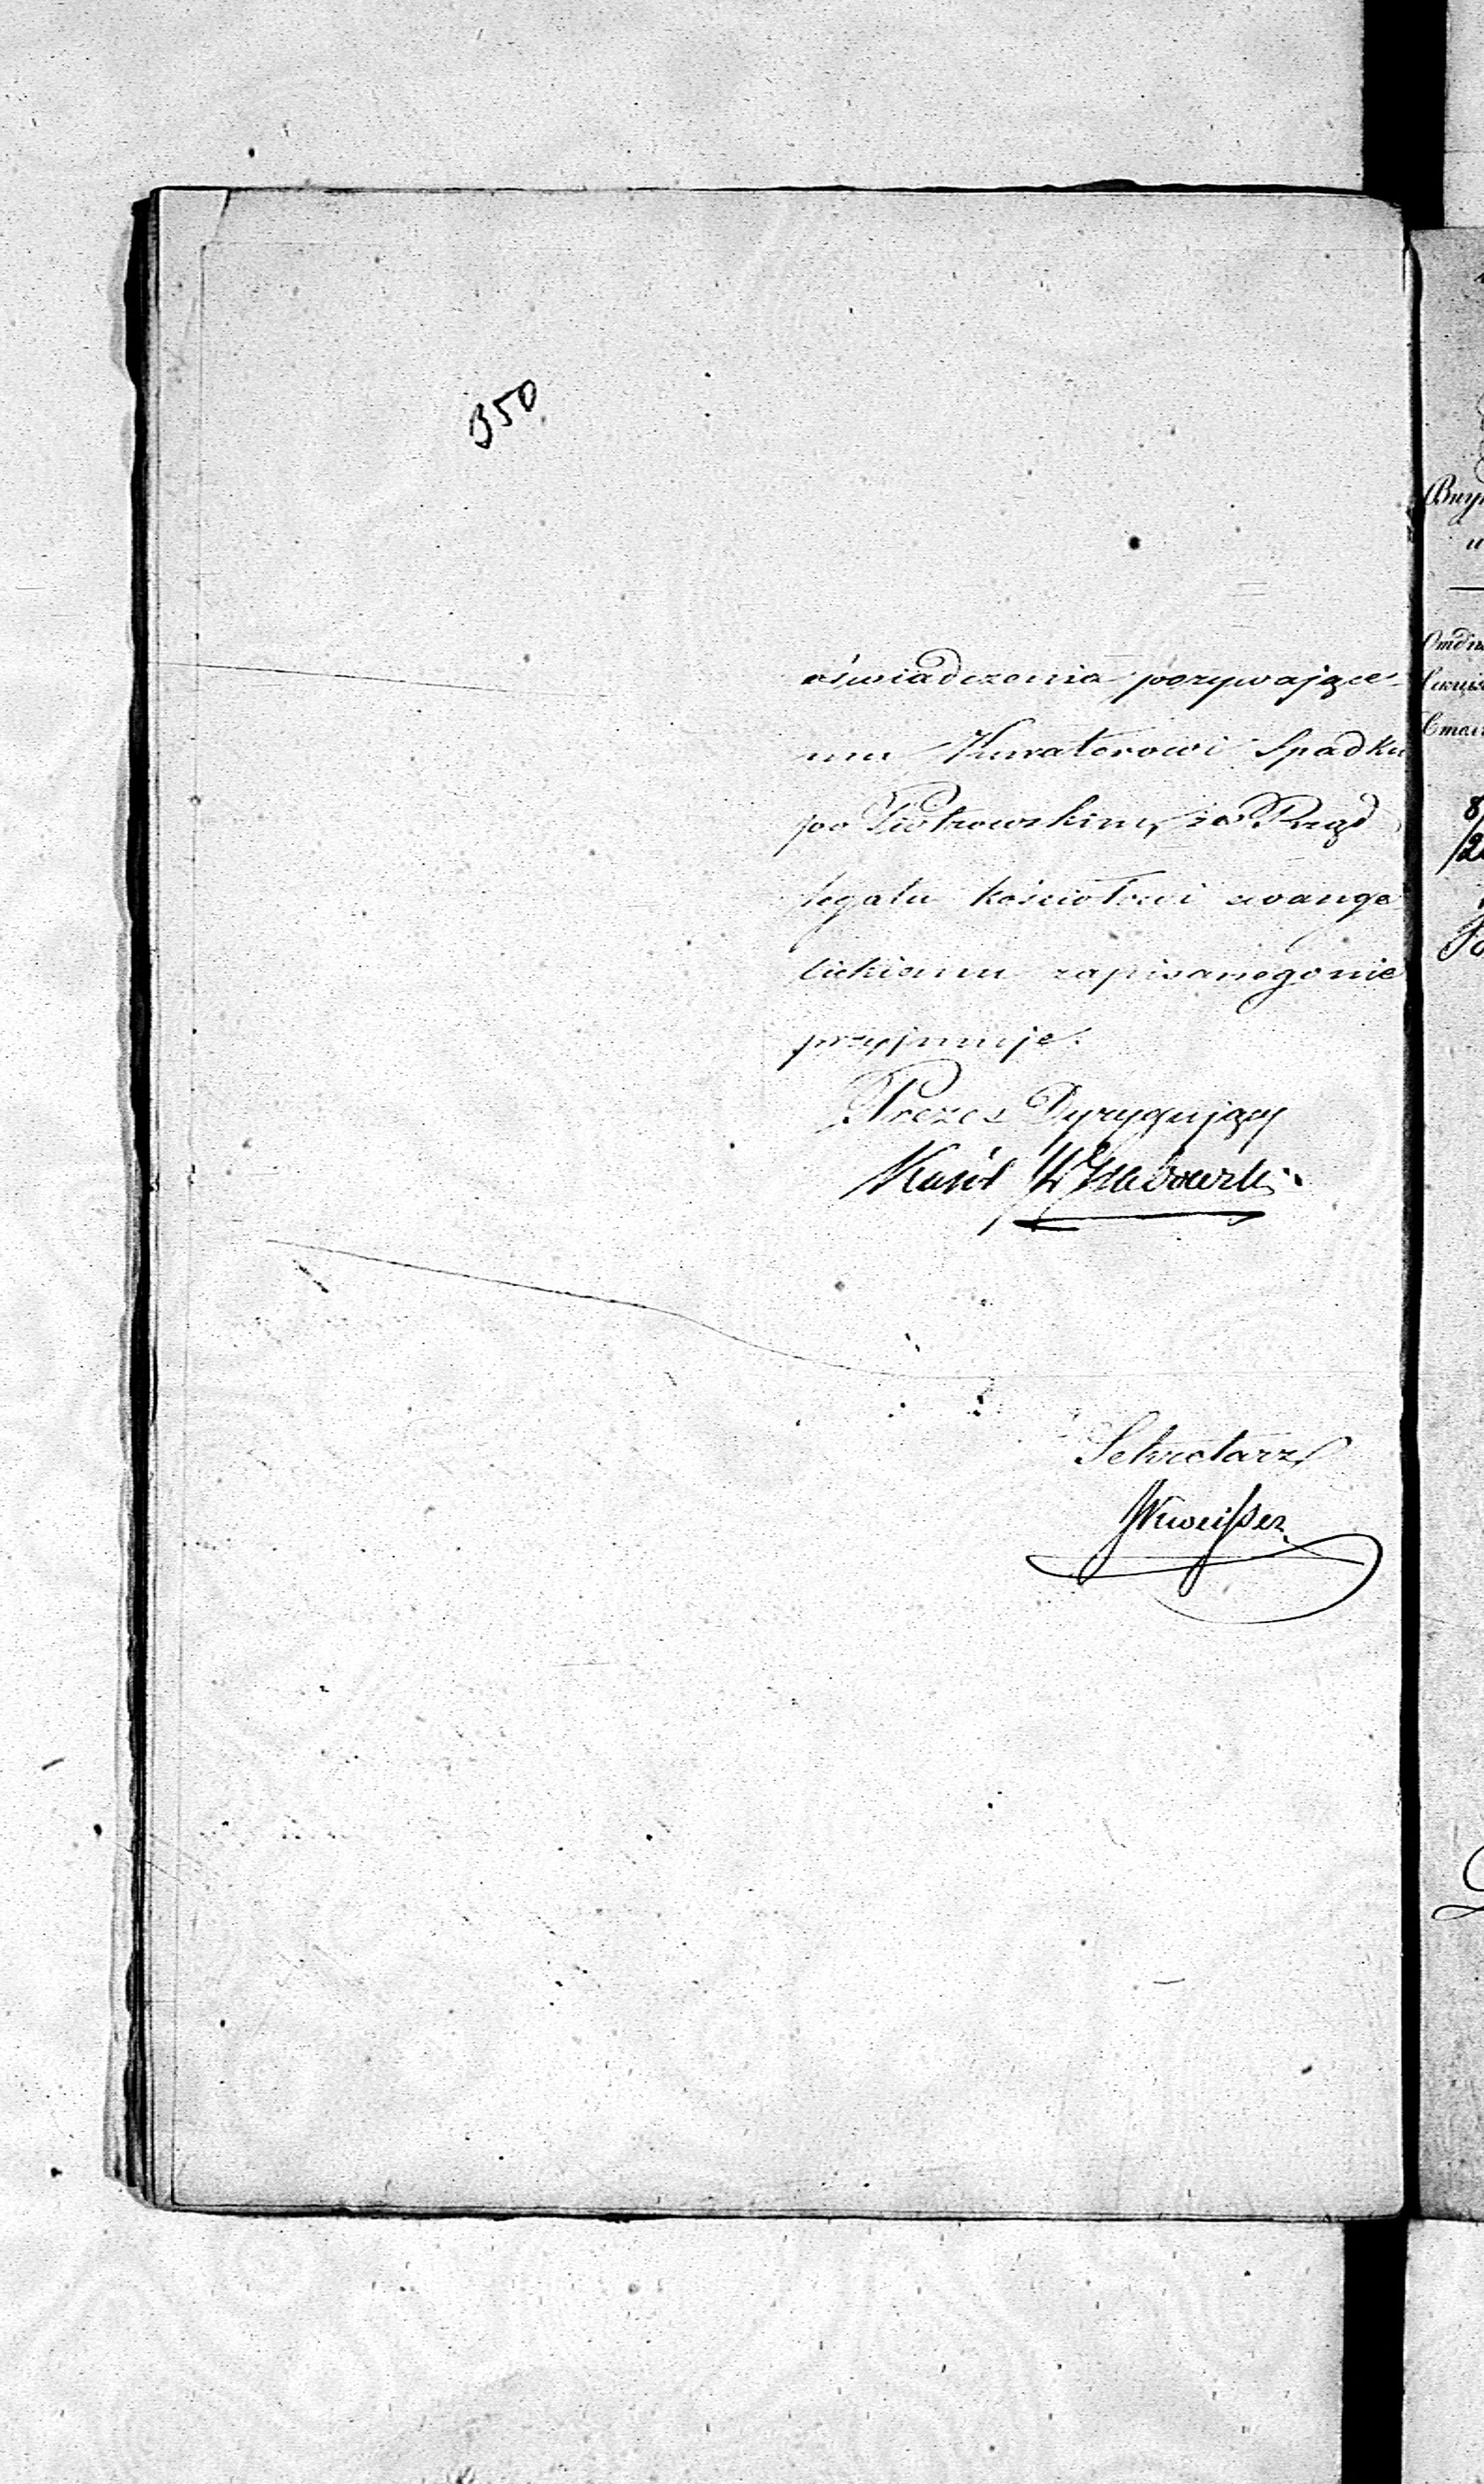 350
oświadczenia pozywające-
mu Kuratorowi Spadku
po Piotrowskim, że Rząd
legatu kościołowi ewange-
lickiemu zapisanego nie
przyjmuje.
Prezes Dyrygujący
Karol
Sekretarz